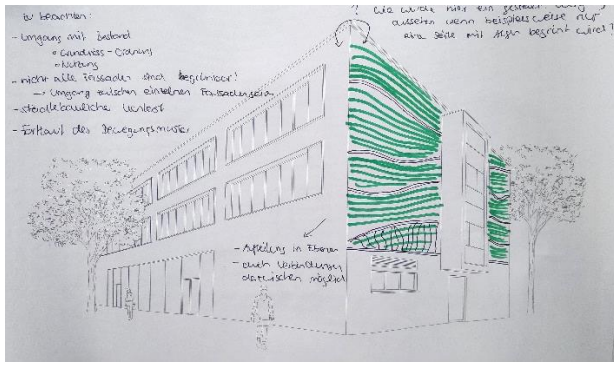 zu beachten:
- Umgang mit Bestand
Grundriss-Ordnung
Nutzung
- nicht alle Fassaden sind begrünbar!
→ Umgang zwischen einzelnen Fassadenseiten
- städtebauliche Kontext
- Fortlauf des Bewegungsmuster
? Wie würde hier ein
aussehen wenn beispielsweise nur
eine Seite mit Algen begrünt wird?
- Aufteilung in Ebenen
- auch Verbindungen
dazwischen möglich